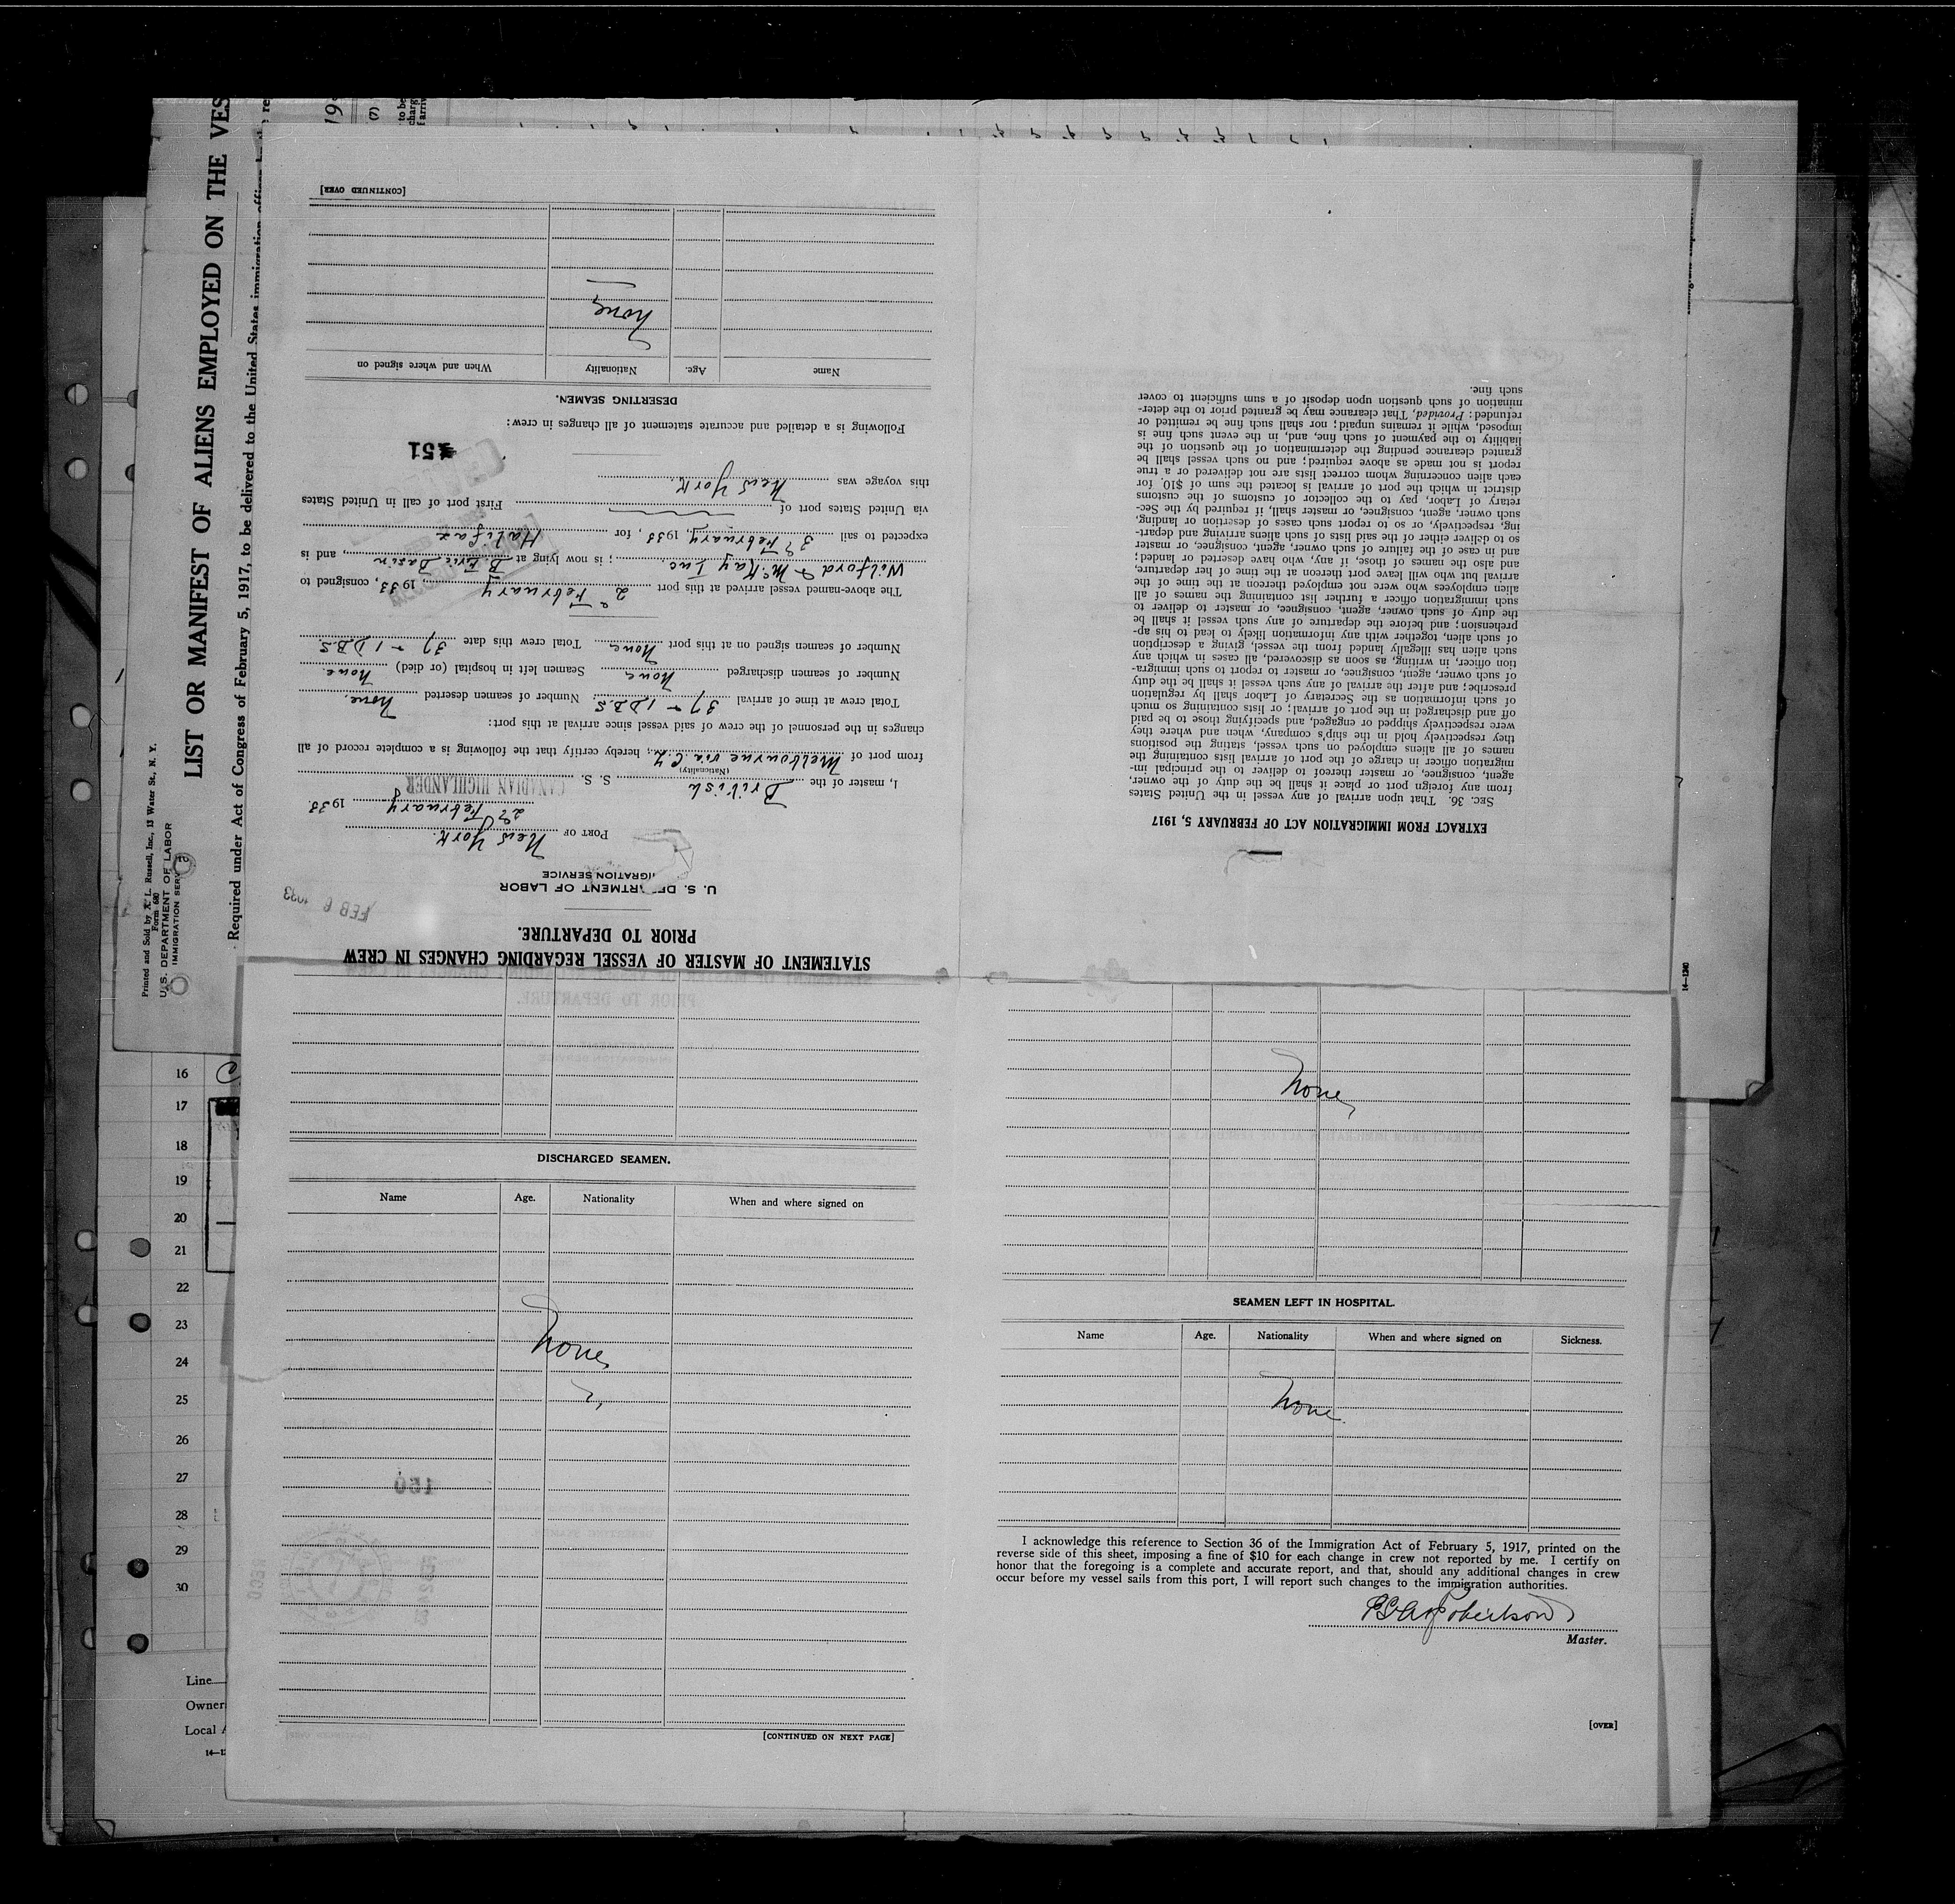 LIST OR MANIFEST OF ALIENS EMPLOYED ON THE VES
Required under Act of Congress of February 5, 1917, to be delivered to the United States immigration officer
Printed and Sold by A. L. Russell, Inc., 13 Water St., N. Y.
Form 680
U. S. DEPARTMENT OF LABOR
IMMIGRATION SERV
19
(7)
STATEMENT OF MASTER OF VESSEL REGARDING CHANGES IN CREW
PRIOR TO DEPARTURE.
U. S. DEPARTMENT OF LABOR
IGRATION SERVICE
FEB 6 1933
PORT OF New York.
2nd February 1933
I, master of the British S. S. CANADIAN HIGHLANDER
(Nationality)
from port of Melbourne via C.Z., hereby certify that the following is a complete record of all
changes in the personnel of the crew of said vessel since arrival at this port:
Total crew at time of arrival 37 + 1 D.B.S Number of seamen deserted None.
Number of seamen discharged None Seamen left in hospital (or died) None.
Number of seamen signed on at this port None. Total crew this date 37 + 1 D.B.S.
The above-named vessel arrived at this port 2nd February, 1933, consigned to
Wilford & McKay Inc.; is now lying at B. Erie Basin, and is
expected to sail 3rd February, 1933, for Halifax
via United States port of First port of call in United States
this voyage was New York.
151
Following is a detailed and accurate statement of all changes in crew:
DESERTING SEAMEN.
Name Age. Nationality When and where signed on
None
[CONTINUED OVER]
EXTRACT FROM IMMIGRATION ACT OF FEBRUARY 5, 1917
SEC. 36. That upon arrival of any vessel in the United States
from any foreign port or place it shall be the duty of the owner,
agent, consignee, or master thereof to deliver to the principal im-
migration officer in charge of the port of arrival lists containing the
names of all aliens employed on such vessel, stating the positions
they respectively hold in the ship's company, when and where they
were respectively shipped or engaged, and specifying those to be paid
off and discharged in the port of arrival; or lists containing so much
of such information as the Secretary of Labor shall by regulation
prescribe; and after the arrival of any such vessel it shall be the duty
of such owner, agent, consignee, or master to report to such immigra-
tion officer, in writing, as soon as discovered, all cases in which any
such alien has illegally landed from the vessel, giving a description
of such alien, together with any information likely to lead to his ap-
prehension; and before the departure of any such vessel it shall be
the duty of such owner, agent, consignee, or master to deliver to
such immigration officer a further list containing the names of all
alien employees who were not employed thereon at the time of the
arrival but who will leave port thereon at the time of her departure,
and also the names of those, if any, who have deserted or landed;
and in case of the failure of such owner, agent, consignee, or master
so to deliver either of the said lists of such aliens arriving and depart-
ing, respectively, or so to report such cases of desertion or landing,
such owner, agent, consignee, or master shall, if required by the Sec-
retary of Labor, pay to the collector of customs of the customs
district in which the port of arrival is located the sum of $10 for
each alien concerning whom correct lists are not delivered or a true
report is not made as above required; and no such vessel shall be
granted clearance pending the determination of the question of the
liability to the payment of such fine, and, in the event such fine is
imposed, while it remains unpaid; nor shall such fine be remitted or
refunded: Provided, That clearance may be granted prior to the deter-
mination of such question upon deposit of a sum sufficient to cover
such fine.
14—1240
DISCHARGED SEAMEN.
Name Age. Nationality When and where signed on
None
[CONTINUED ON NEXT PAGE]
None
SEAMEN LEFT IN HOSPITAL.
Name Age. Nationality When and where signed on Sickness.
None
I acknowledge this reference to Section 36 of the Immigration Act of February 5, 1917, printed on the
reverse side of this sheet, imposing a fine of $10 for each change in crew not reported by me. I certify on
honor that the foregoing is a complete and accurate report, and that, should any additional changes in crew
occur before my vessel sails from this port, I will report such changes to the immigration authorities.
Robertson
Master.
[OVER]
16
17
18
19
20
21
22
23
24
25
26
27
28
29
30
Line
Owner
Local A